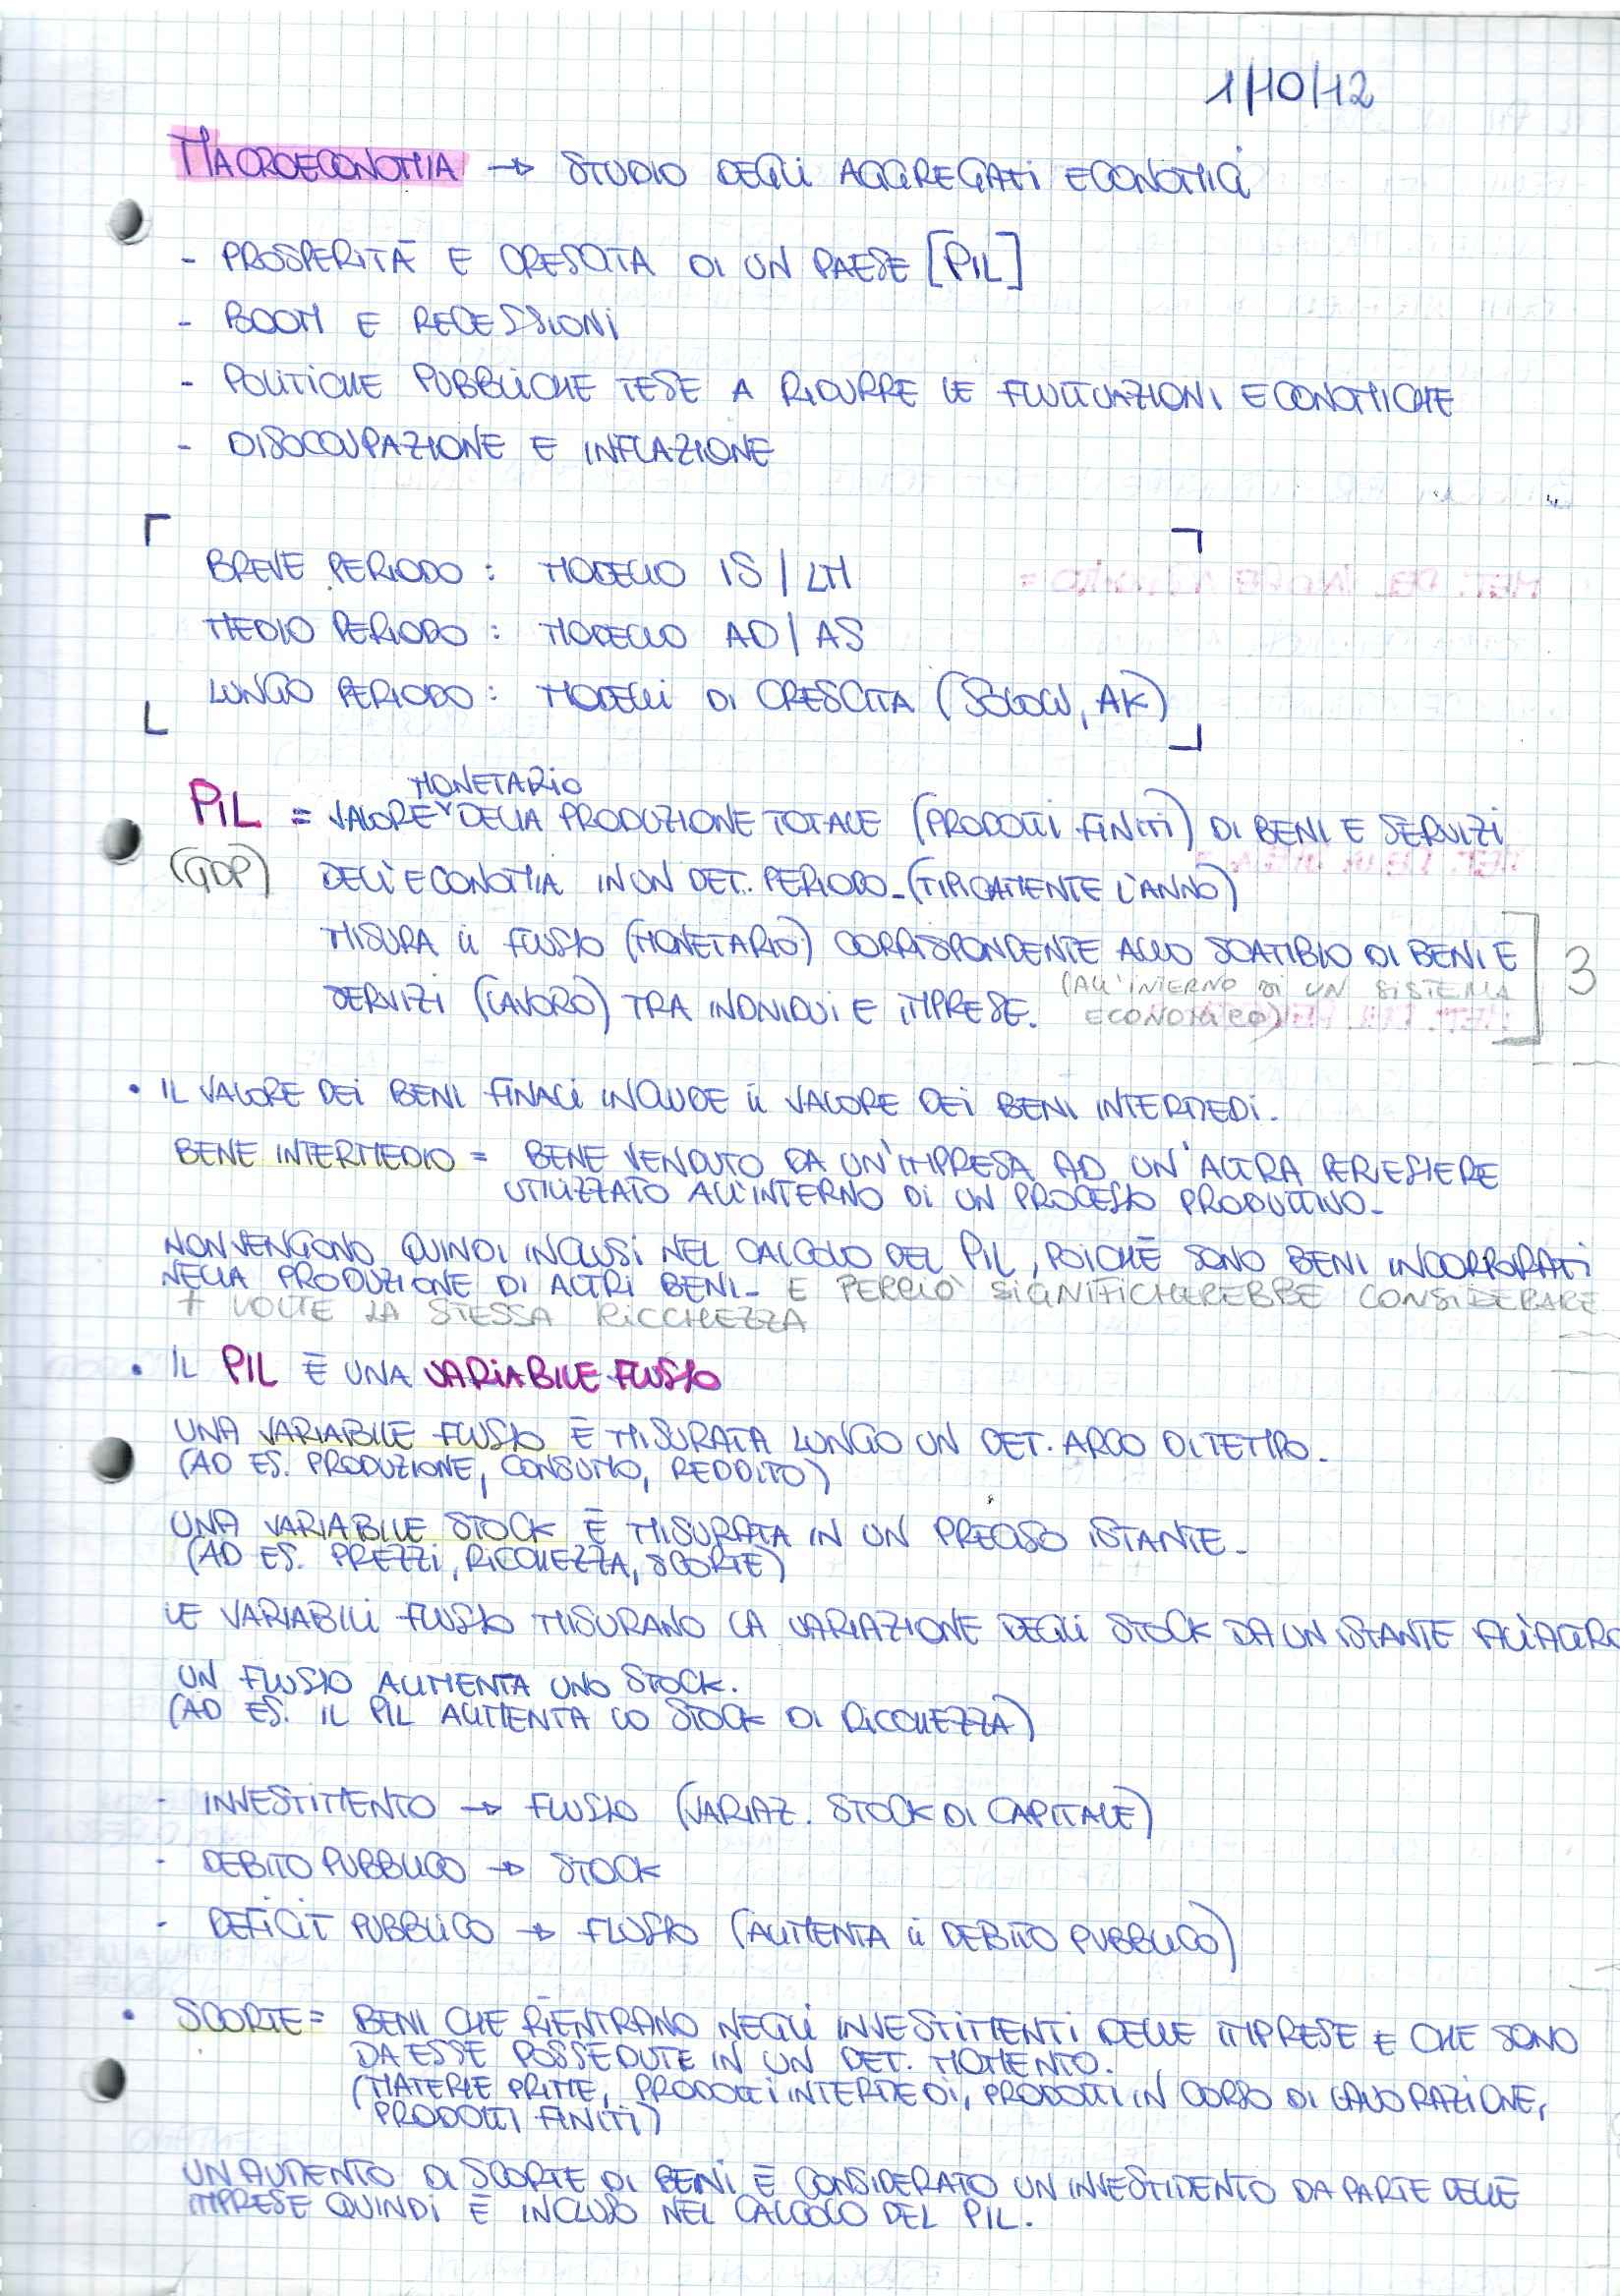 1/10/12
MACROECONOMIA → STUDIO DEGLI AGGREGATI ECONOMICI
- PROSPERITÀ E CRESCITA DI UN PAESE [PIL]
- BOOM E RECESSIONI
- POLITICHE PUBBLICHE TESE A RIDURRE LE FLUTTUAZIONI ECONOMICHE
- DISOCCUPAZIONE E INFLAZIONE
BREVE PERIODO : MODELLO IS/LM
MEDIO PERIODO : MODELLO AD/AS
LUNGO PERIODO : MODELLI DI CRESCITA (SOLOW, AK)
MONETARIO
PIL = VALORE DELLA PRODUZIONE TOTALE (PRODOTTI FINITI) DI BENI E SERVIZI
(GDP) DELL'ECONOMIA IN UN DET. PERIODO - (TIPICAMENTE L'ANNO)
MISURA IL FLUSSO (MONETARIO) CORRISPONDENTE ALLO SCAMBIO DI BENI E 3
SERVIZI (LAVORO) TRA INDIVIDUI E IMPRESE. (ALL'INTERNO DI UN SISTEMA
ECONOMICO)
• IL VALORE DEI BENI FINALI INCLUDE IL VALORE DEI BENI INTERMEDI.
BENE INTERMEDIO = BENE VENDUTO DA UN'IMPRESA AD UN'ALTRA PER ESSERE
UTILIZZATO ALL'INTERNO DI UN PROCESSO PRODUTTIVO -
NON VENGONO QUINDI INCLUSI NEL CALCOLO DEL PIL, POICHÈ SONO BENI INCORPORATI
NELLA PRODUZIONE DI ALTRI BENI - E PERCIÒ SIGNIFICHEREBBE CONSIDERARE
+ VOLTE LA STESSA RICCHEZZA
• IL PIL È UNA VARIABILE FLUSSO
UNA VARIABILE FLUSSO È MISURATA LUNGO UN DET. ARCO DI TEMPO -
(AD ES. PRODUZIONE, CONSUMO, REDDITO)
UNA VARIABILE STOCK È MISURATA IN UN PRECISO ISTANTE -
(AD ES. PREZZI, RICCHEZZA, SCORTE)
LE VARIABILI FLUSSO MISURANO LA VARIAZIONE DEGLI STOCK DA UN ISTANTE ALL'ALTRO
UN FLUSSO AUMENTA UNO STOCK.
(AD ES. IL PIL AUMENTA LO STOCK DI RICCHEZZA)
- INVESTIMENTO → FLUSSO (VARIAZ. STOCK DI CAPITALE)
- DEBITO PUBBLICO → STOCK
- DEFICIT PUBBLICO → FLUSSO (AUMENTA IL DEBITO PUBBLICO)
• SCORTE = BENI CHE RIENTRANO NEGLI INVESTIMENTI DELLE IMPRESE E CHE SONO
DA ESSE POSSEDUTE IN UN DET. MOMENTO.
(MATERIE PRIME, PRODOTTI INTERMEDI, PRODOTTI IN CORSO DI LAVORAZIONE,
PRODOTTI FINITI)
UN AUMENTO DI SCORTE DI BENI È CONSIDERATO UN INVESTIMENTO DA PARTE DELLE
IMPRESE QUINDI È INCLUSO NEL CALCOLO DEL PIL.